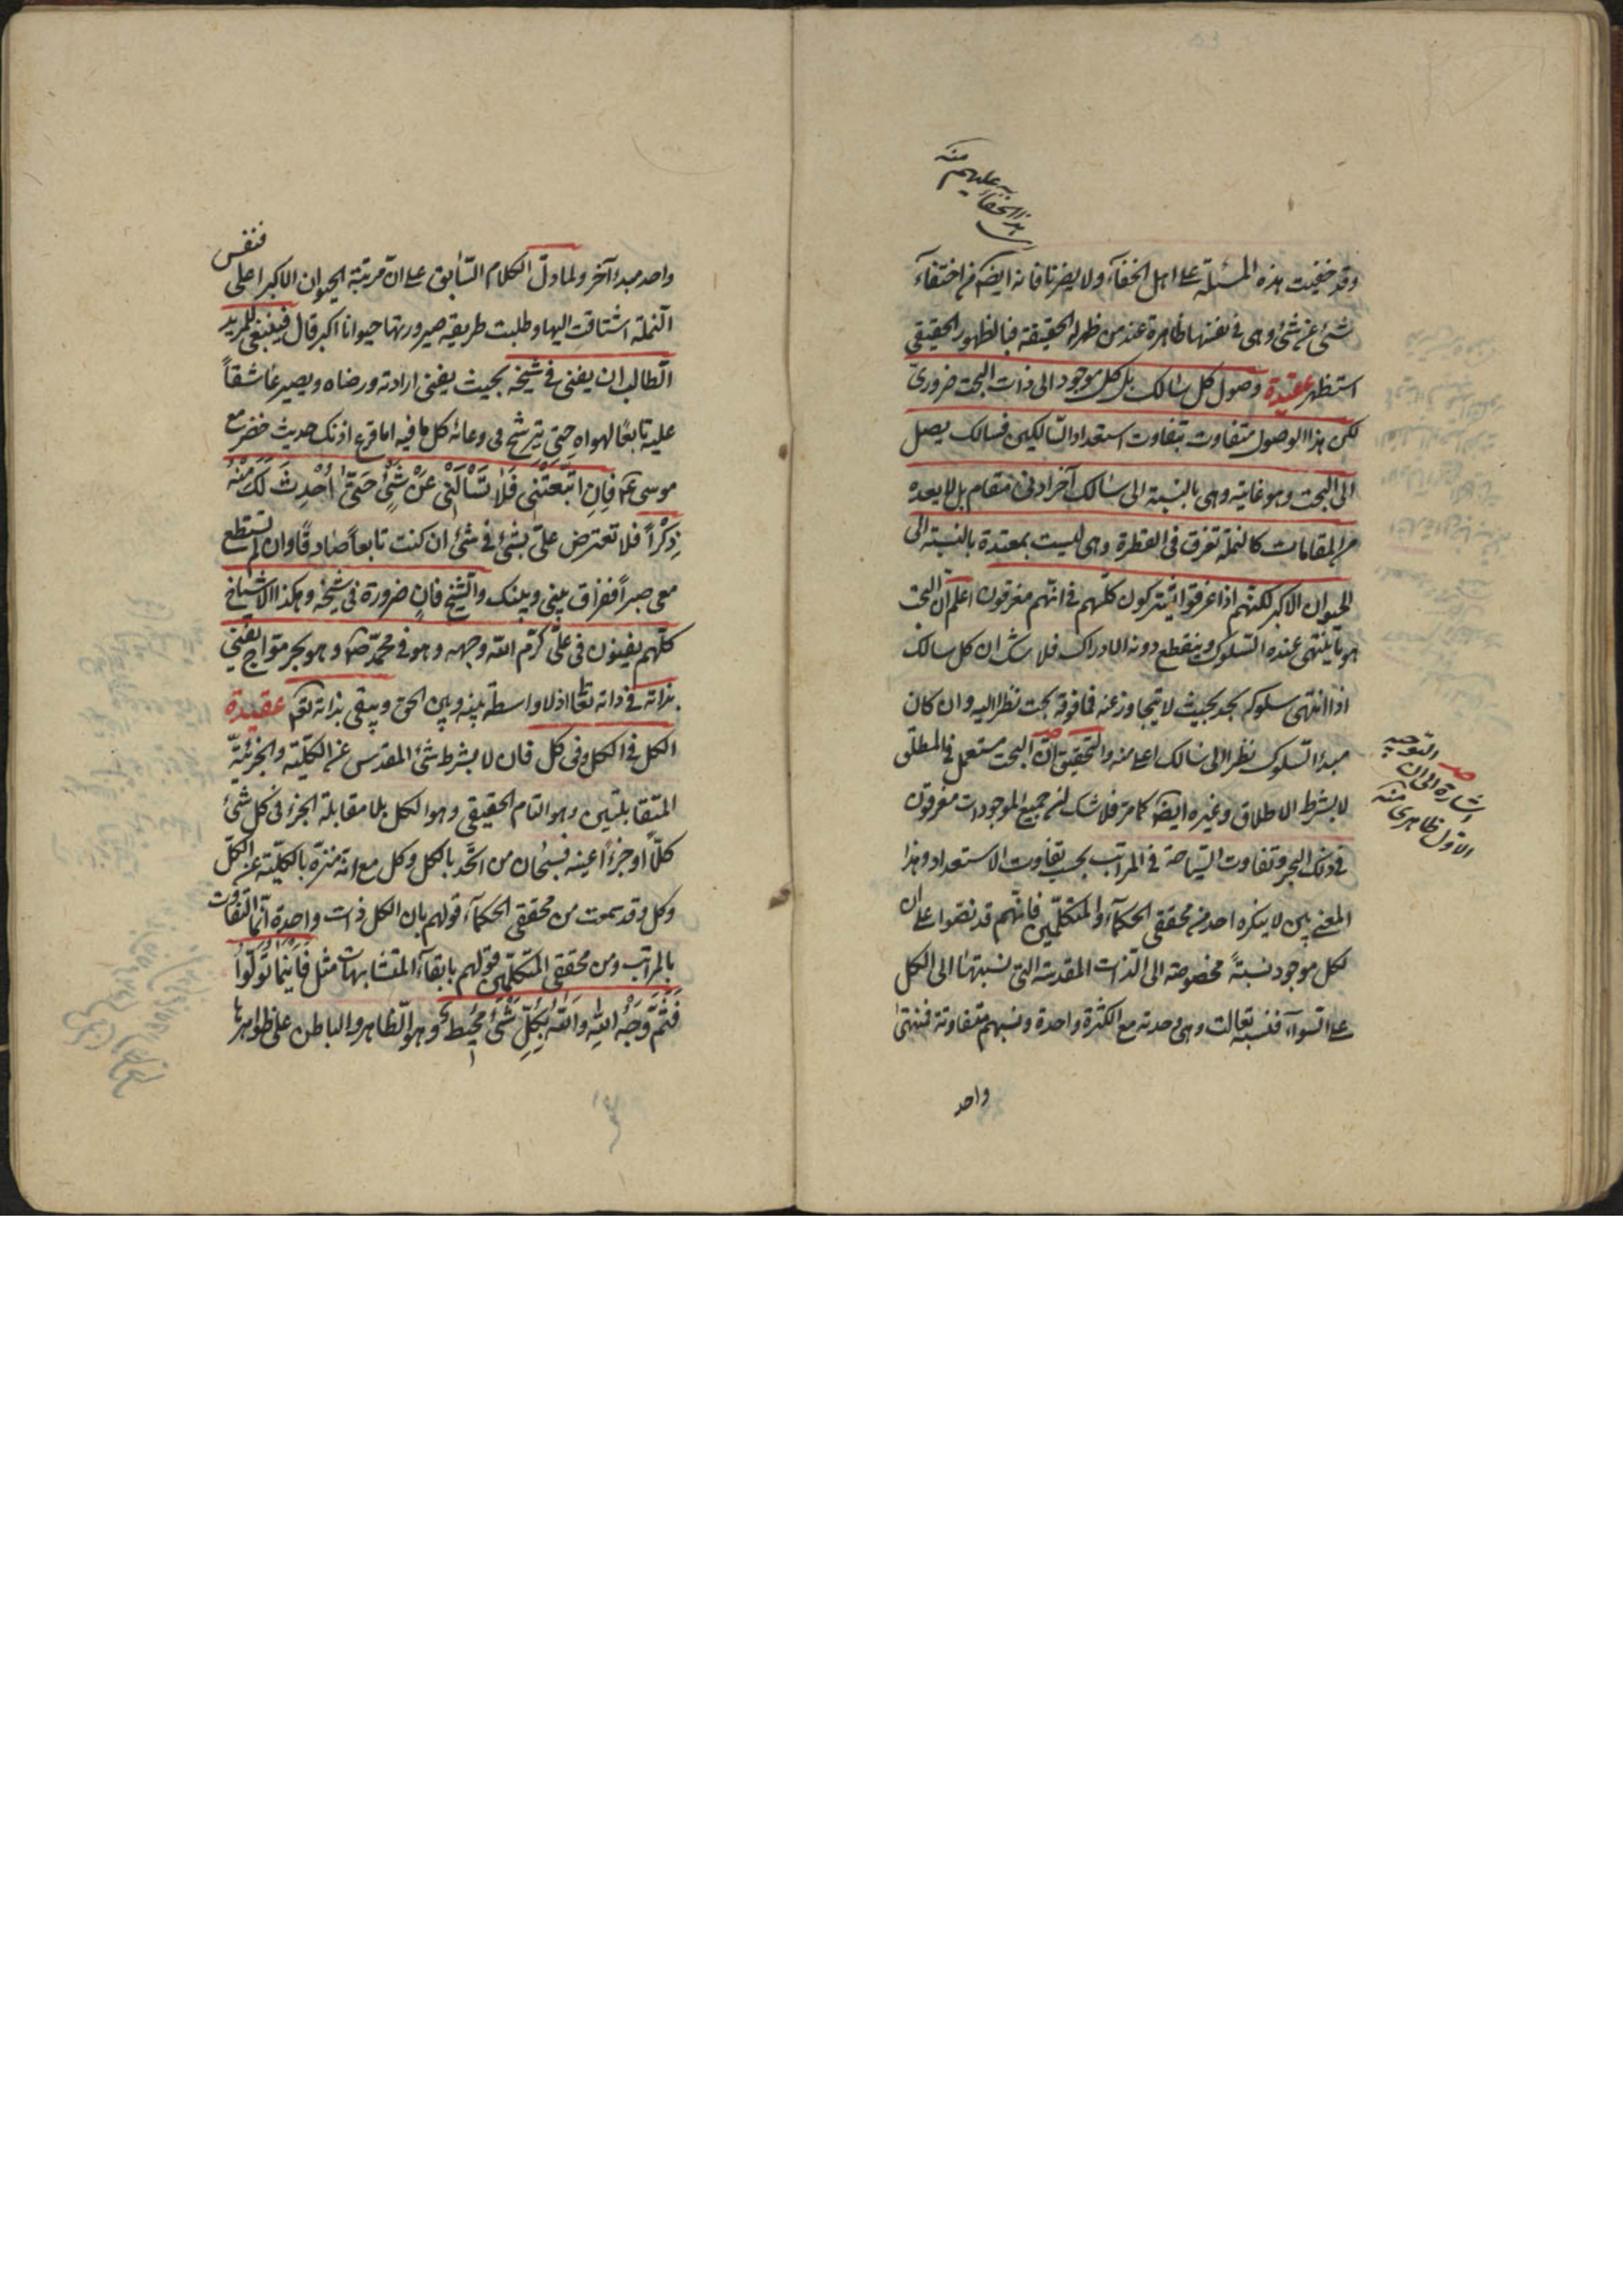 وقد خفيت هذه المسئلة على اهل الخفآء ولا يضرنا فانه ايضا من اختفآء
شئ عن شئ وهى في نفسها ظاهرة عند من ظهر له الحقيقة فبالظهور الحقيقى
استظهر عقيدة وصول كل سالك بل كل موجود الى ذات البحت ضرورى
لكن هذا الوصول متفاوت بتفاوت استعداد السّالكين فسالك يصل
الى البحت وهو غايته وهى بالنسبة الى سالك آخر ادنى مقام بل لا يعده
من المقامات كالنملة تغرق فى القطرة وهى ليست بمعتدة بالنسبة الى
الحيوان الاكبر لكنّهم اذا غرقوا يشتركون كلّهم في انّهم مغرقون اعلم ان البحت
هو ما ينتهى عنده السّلوك وينقطع دونه الادراك فلا شك ان كل سالك
اذا انتهى سلوكه بحد بحيث لا يتجاوز عنه فما فوقه بحت نظرا اليه وان كان
مبدأ السّلوك نظرا الى سالك اعلى منه والتّحقيق انّ البحت مستعمل في المطلق
لا بشرط الاطلاق وغيره ايضا كما مرّ فلا شك ان جميع الموجودات مغرقون
في ذلك البحر وتفاوت السّياحة في المراتب بحسب تفاوت الاستعداد وهذا
المعنى بين لا ينكره احد من محققى الحكمآء والمتكلّمين فانّهم قد نصّوا على ان
لكل موجود نسبةً مخصوصة الى الذات المقدسة التى نسبتها الى الكل
على السّوآء فنسبة تعالت وهى وحدته مع الكثرة واحدة ونسبهم متفاوتة فمنتهى
واحد
هذا الخفآء
عليهم منه
صد التوجيه
اشارة الى ان
الاول ظاهرى منه
واحد مبدء آخر ولما دلّ الكلام السّابق على انّ مرتبة الحيوان الاكبر اعلى فنفس
النملة اشتاقت اليها وطلبت طريقه صيرورتها حيوانا اكبر قال فينبغى للمريد
الطالب ان يفنى في شيخه بحيث يفنى ارادته ورضاه ويصير عاشقاً
عليه تابعًا لهواه حتى يترشح فى وعائه كل ما فيه اما قرع اذنك حديث خضر مع
موسى عم فَاِنِ اتَّبَعْتَنى فَلَا تَسْاَلْنى عَنْ شَئٍ حَتّى اُحْدِثَ لَكَ مِنْهُ
ذِكْراً فلا تعترض علىّ بشئ في شئ ان كنت تابعاً صادقاً وان لم تستطع
معى صبراً ففراق بينى وبينك والشّيخ فانٍ ضرورة فى شيخه وهكذا الاشياخ
كلّهم يفنون فى علىّ كرّم الله وجهه وهو في محمّد صم وهو بحر موّاج يفنى
بذاته في ذاته تعا اذ لا واسطة بينه وبين الحق ويبقى بذاته تعم عقيدة
الكل في الكل وفى كل فان لا بشرط شئ المقدس عن الكلّيّة والجزئيّة
المتقابلتين وهو التام الحقيقى وهو الكل بلا مقابلة الجزء فى كل شئ
كلّا او جزءًا عينه فسبحان من اتّحد بالكل وكل مع انّه منزه بالكلّيّة عن الكلّ
وكل وقد سمعت من محققى الحكمآء قولهم بان الكل ذات واحدة انّما التفاوت
بالمراتب ومن محققى المتكلّمين قولهم بابقآء المتشابهات مثل فَاَيْنَمَا تُوَلّوُا
فَثَمَّ وَجْهُ اللهِ وَاللهُ بِكُلّ شَئٍ مُحِيط وهو الظاهر والباطن على ظواهرها